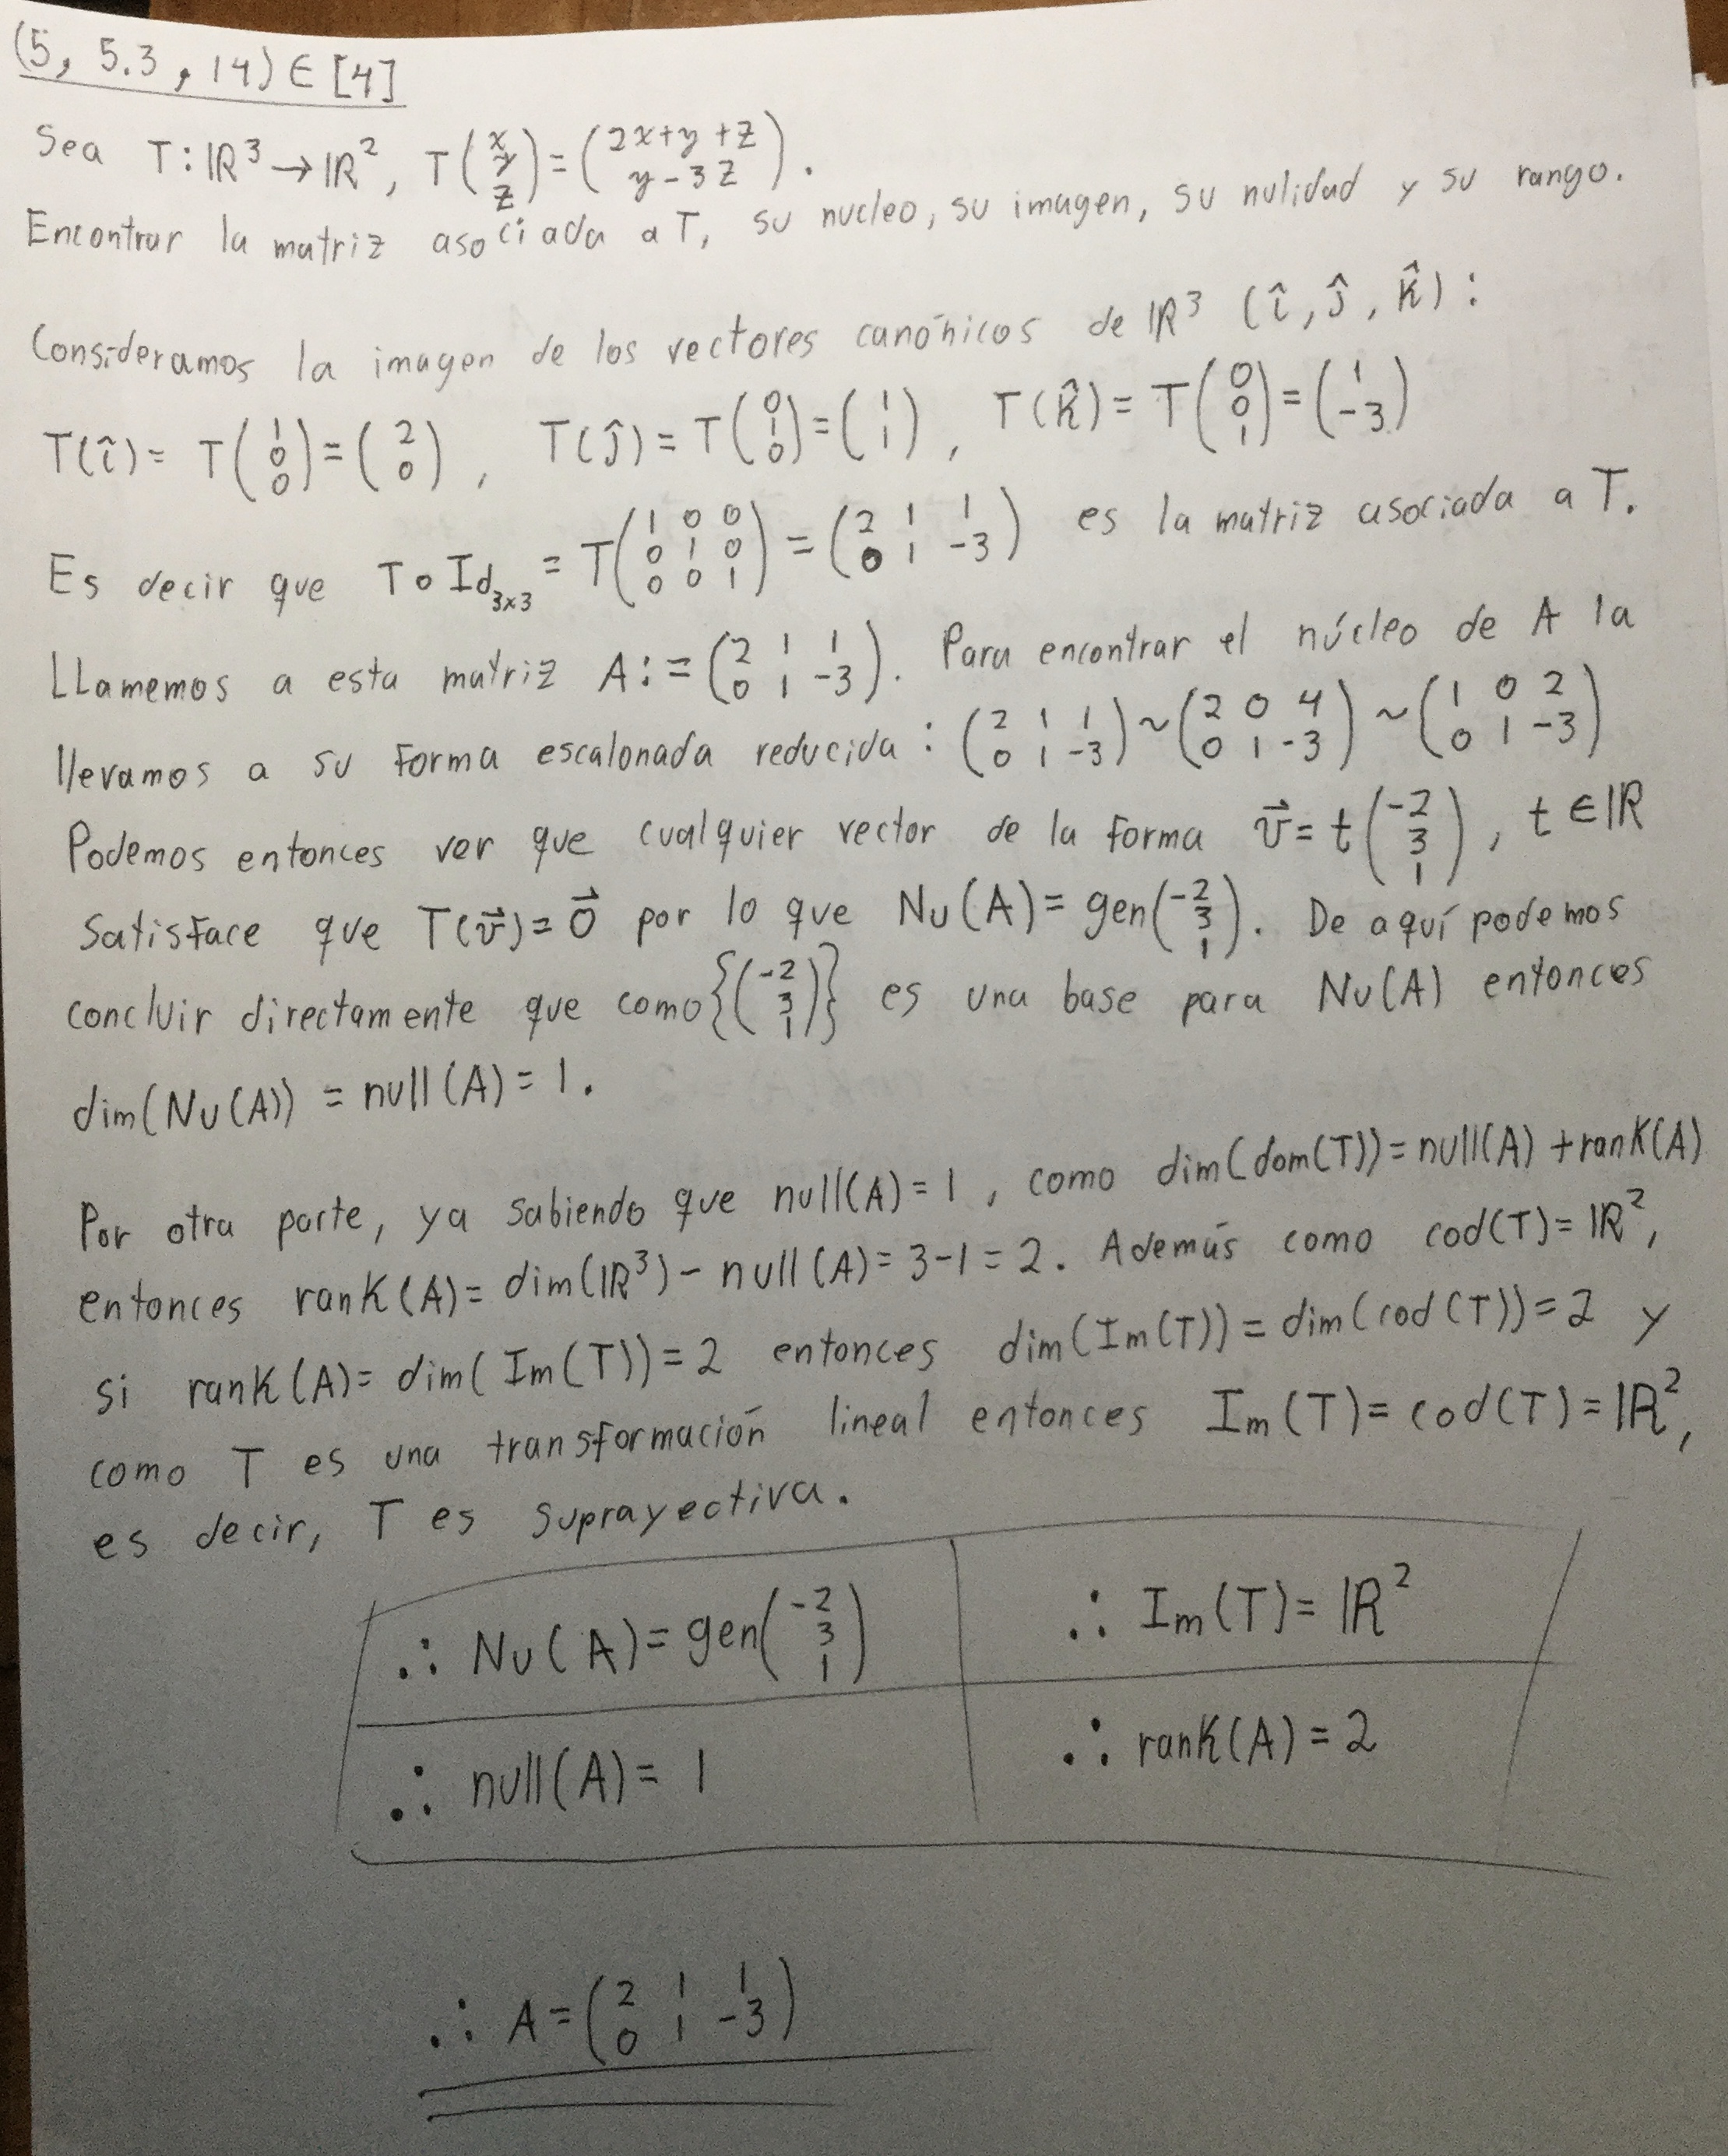 (5, 5.3, 14) ∈ [4]
Sea T: ℝ³ → ℝ², T(x y z) = (2x+y+z / y-3z).
Encontrar la matriz asociada a T, su nucleo, su imagen, su nulidad y su rango.
Consideramos la imagen de los vectores canónicos de ℝ³ (î, ĵ, k̂):
T(î) = T(1 0 0) = (2 0), T(ĵ) = T(0 1 0) = (1 1), T(k̂) = T(0 0 1) = (1 -3)
Es decir que T∘Id₃ₓ₃ = T(1 0 0 / 0 1 0 / 0 0 1) = (2 1 1 / 0 1 -3) es la matriz asociada a T.
LLamemos a esta matriz A := (2 1 1 / 0 1 -3). Para encontrar el núcleo de A la
llevamos a su forma escalonada reducida: (2 1 1 / 0 1 -3) ~ (2 0 4 / 0 1 -3) ~ (1 0 2 / 0 1 -3)
Podemos entonces ver que cualquier vector de la forma v⃗ = t(-2 3 1), t ∈ ℝ
satisface que T(v⃗) = 0⃗ por lo que Nu(A) = gen(-2 3 1). De aquí podemos
concluir directamente que como {(-2 3 1)} es una base para Nu(A) entonces
dim(Nu(A)) = null(A) = 1.
Por otra parte, ya sabiendo que null(A) = 1, como dim(dom(T)) = null(A) + rank(A)
entonces rank(A) = dim(ℝ³) - null(A) = 3-1 = 2. Además como cod(T) = ℝ²,
si rank(A) = dim(Im(T)) = 2 entonces dim(Im(T)) = dim(cod(T)) = 2 y
como T es una transformación lineal entonces Im(T) = cod(T) = ℝ²,
es decir, T es suprayectiva.
∴ Nu(A) = gen(-2 3 1)
∴ Im(T) = ℝ²
∴ null(A) = 1
∴ rank(A) = 2
∴ A = (2 1 1 / 0 1 -3)